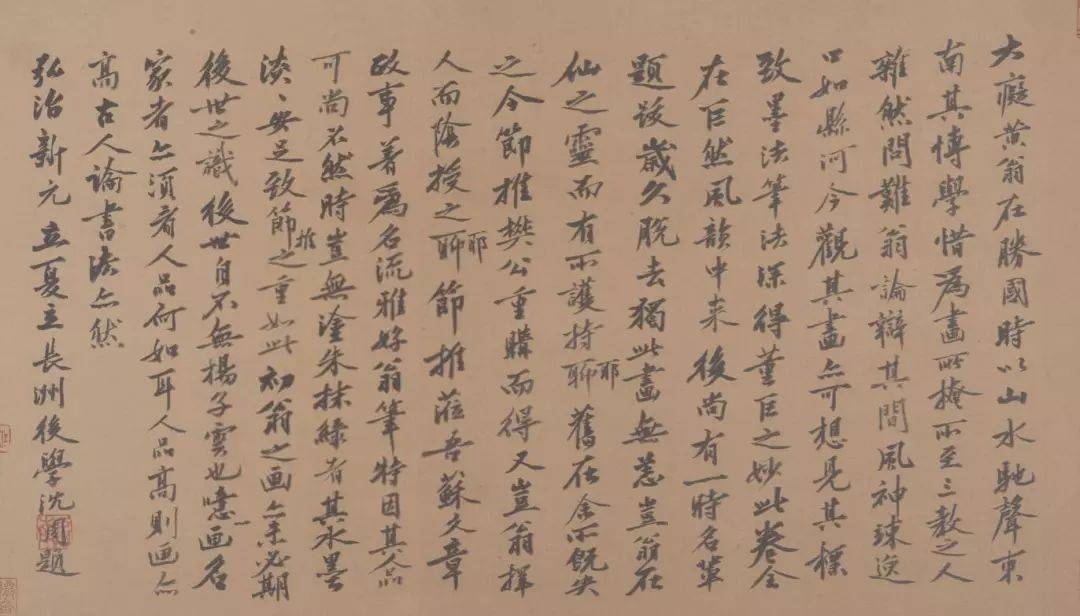 大癡黃翁在勝國時以山水馳聲東
南其博學惜爲畫所掩所至三教之人
雜然問難翁論辯其間風神竦逸
口如縣河今觀其畫亦可想見其標
致墨法筆法深得董巨之妙此卷全
在巨然風韻中来後尚有一時名輩
題跋歲久脫去獨此畫無恙豈翁在
仙之靈而有所護持聊耶舊在余所既失
之今節推樊公重購而得又豈翁擇
人而陰授之聊耶節推莅吾蘇文章
政事著爲名流雅好翁筆特因其人品
可尚不然時豈無塗朱抹綠者其水墨
淡、安足致節推之重如此初翁之画亦未必期
後世之識後世自不無揚子雲也噫画名
家者亦須看人品何如耳人品高則画亦
高古人論書法亦然
弘治新元立夏立長洲後學沈周題